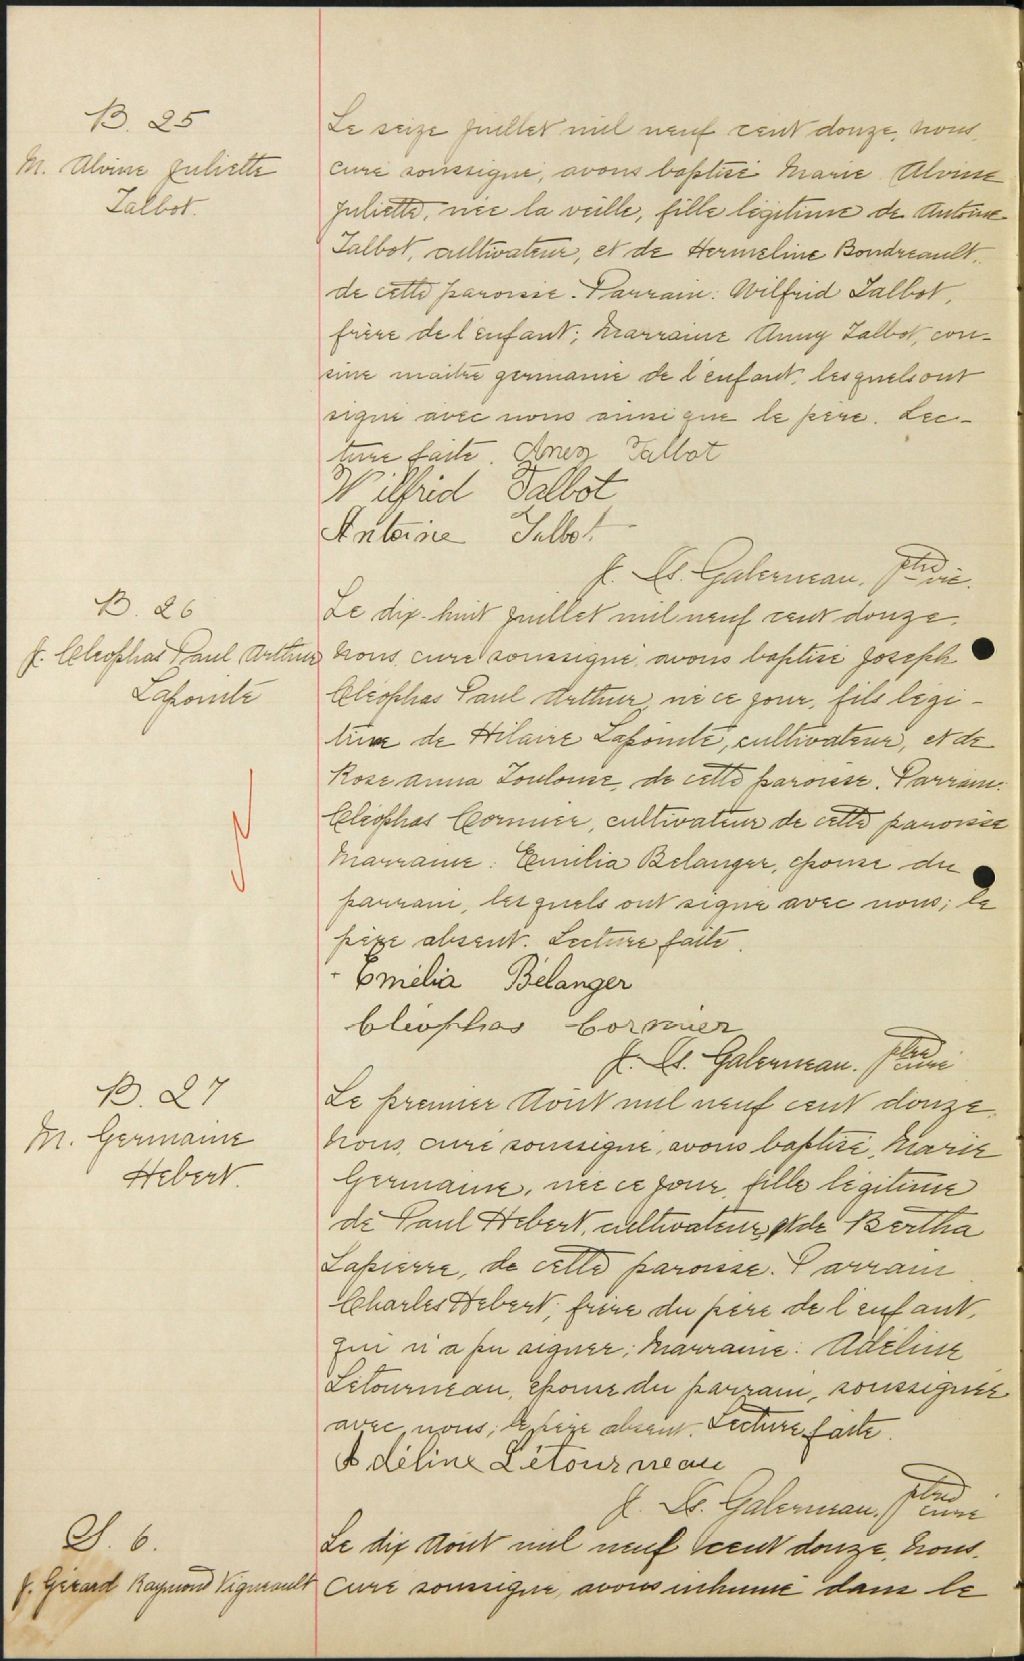 B. 25
M. Alvine Juliette
Talbot.
Le seize juillet mil neuf cent douze, nous,
curé soussigné, avons baptisé Marie Alvine
Juliette, née la veille, fille légitime de Antoine
Talbot, cultivateur, et de Hermeline Boudreault,
de cette paroisse. Parrain: Wilfrid Talbot,
frère de l'enfant; Marraine Anny Talbot, cou-
sine germaine de l'enfant, lesquels ont
signé avec nous ainsi que le père. Lec-
ture faite. Talbot
Wilfrid Talbot
Antoine Talbot.
J. Galerneau, ptre
B. 26
J. Cléophas Paul Arthur
Lapointe
Le dix-huit juillet mil neuf cent douze,
nous, curé soussigné, avons baptisé Joseph
Cléophas Paul Arthur, né ce jour, fils légi-
time de Hilaire Lapointe, cultivateur, et de
Rose Anna Toulouse, de cette paroisse. Parrain:
Cléophas Cormier, cultivateur de cette paroisse
Marraine: Emilia Belanger, épouse du
parrain, lesquels ont signé avec nous; le
père absent. Lecture faite.
Emélia Bélanger
Cléophas Cormier
J. Galerneau. ptre curé
B. 27
M. Germaine
Hebert.
Le premier Août mil neuf cent douze,
nous, curé soussigné, avons baptisé, Marie
Germaine, née ce jour, fille légitime
de Paul Hebert, cultivateur, et de Bertha
Lapierre, de cette paroisse. Parrain
Charles Hebert, frère du père de l'enfant,
qui n'a pu signer; Marraine: Adéline
Létourneau, épouse du parrain, soussignée
avec nous; le père absent. Lecture faite.
Adéline Létourneau
J. Galerneau, ptre curé
S. 6.
J. Gérard Raymond Vigneault
Le dix Août mil neuf cent douze, nous,
curé soussigné, avons inhumé dans le